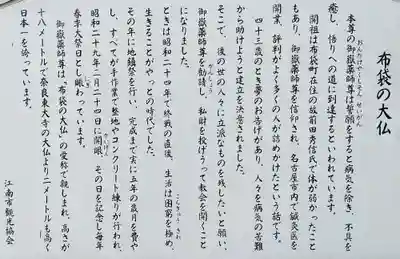 布袋の大仏
本尊の御嶽薬師尊は誓願をすると病気を除き、不具を
おんたけやくしそん
せいがん
癒し、悟りへの道に到達するといわれています。
開祖は布袋町在住の故前田秀信氏で体が弱かったこと
もあり、御嶽薬師尊を信仰され、名古屋市内で鍼灸医を
開業、評判がよく多くの人が詰めかけたという話です。
四十三歳のとき夢のお告げがあり、人々を病気の苦難
から助けようと建立を決意されました。
そこで、後の世の人々に立派なものを残したいと願い、
御嶽薬師尊を勧請し、私財を投げうって教会を開くこと
かんじょう
ときは昭和二十四年で終戦の直後、生活は困窮を極め、
こんきゅう
きわ
生きることがやっとの時代でした。
その年に地鎮祭を行い、完成まで実に五年の歳月を費や
し、すべてが手作業で整地やコンクリート練りが行われ、
昭和二十九年二月二十四日に開眼、その日を記念し毎年
かいげん
春季大祭日とし賑わっています。
御嶽薬師尊は、「布袋の大仏」の愛称で親しまれ、高さが
十八メートルで奈良東大寺の大仏より二メートルも高く
日本一を誇っています。
江南市観光協会